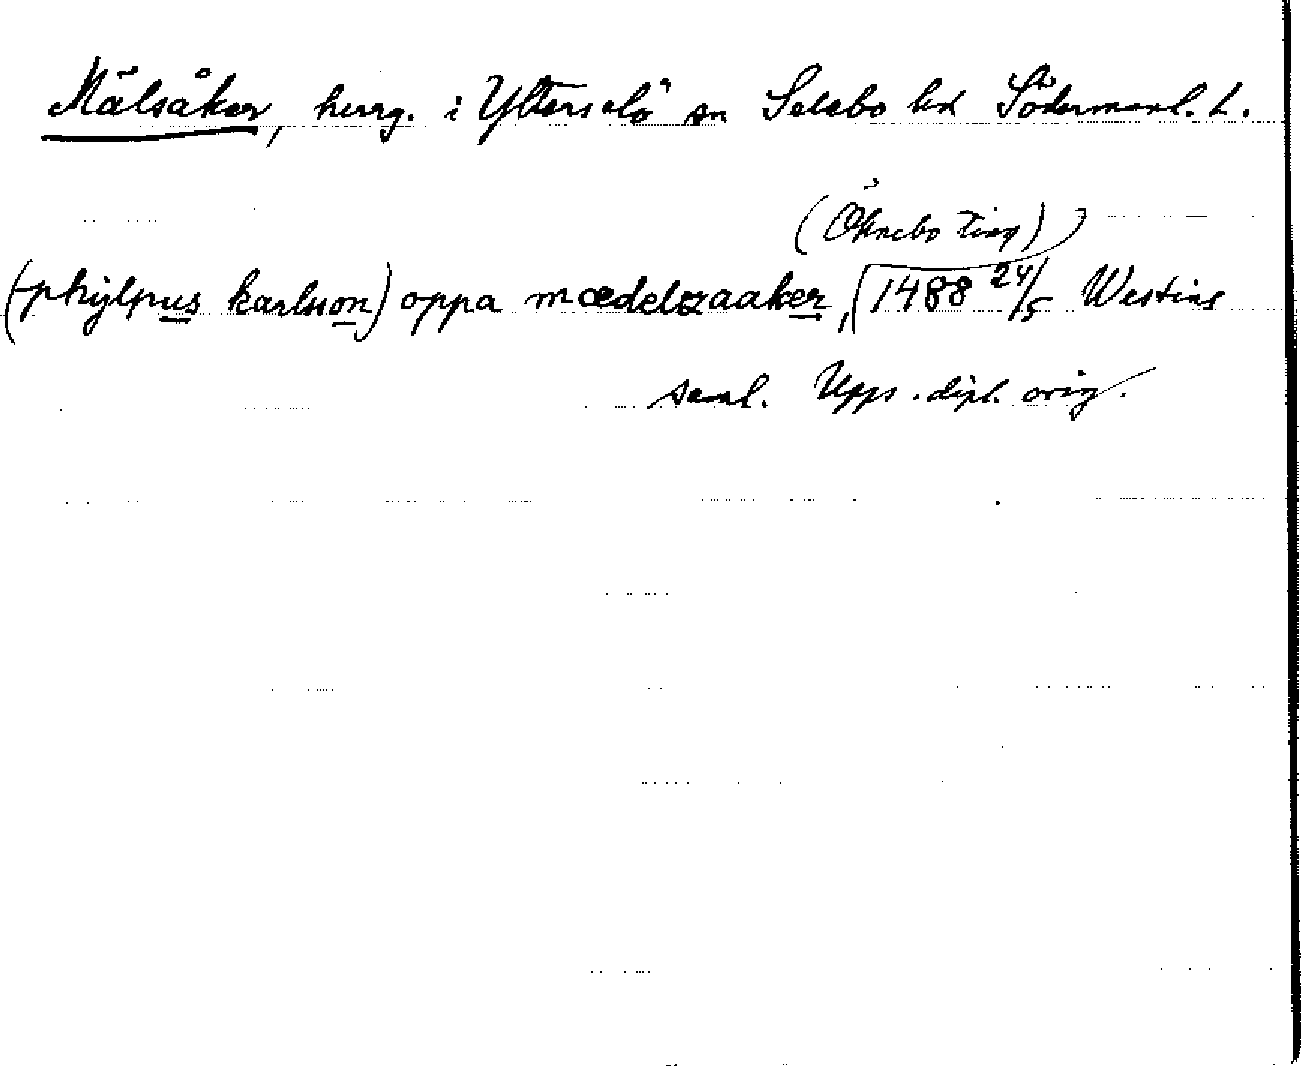 Mälsåker, herrg. i Ytterselö sn Selebo hd Södermanl. L.
(Öknebo ting)
(phylpus karlsson) oppa mædelzaaker, 1488 24/5 Westins
saml. Upps. dipl. orig.